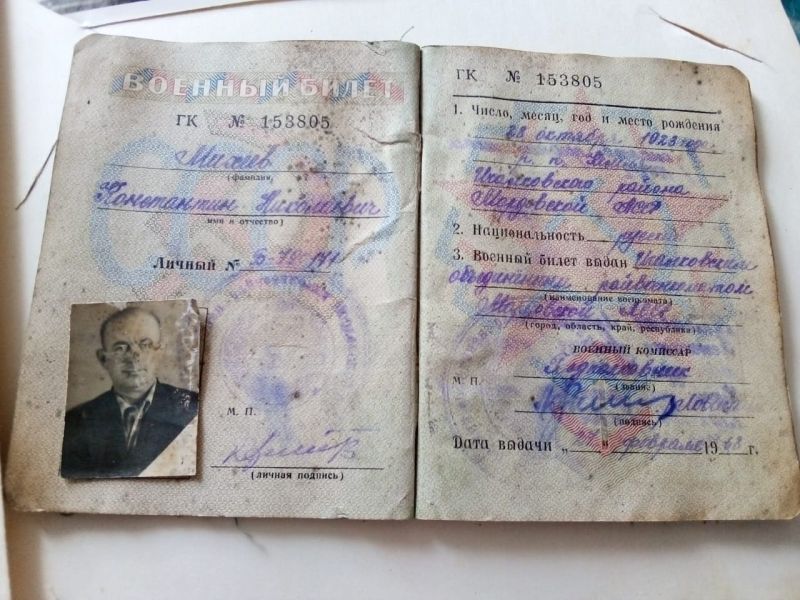 ВОЕННЫЙ БИЛЕТ
ГК № 153805
Михеев
(фамилия)
Константин Николаевич
имя и отчество)
Личный №
М. П.
(личная подпись)
ГК № 153805
1. Число, месяц, год и место рождения
28 октября 1923 года
р. п.
Ичалковского района
Мордовской АССР
2. Национальность русский
3. Военный билет выдан Ичалковским
объединённым райвоенкоматом
(наименование военкомата)
Мордовской АССР
(город, область, край, республика)
ВОЕННЫЙ КОМИССАР
Подполковник
М. П.
(звание)
(подпись)
Дата выдачи „ " февраля 1963 г.